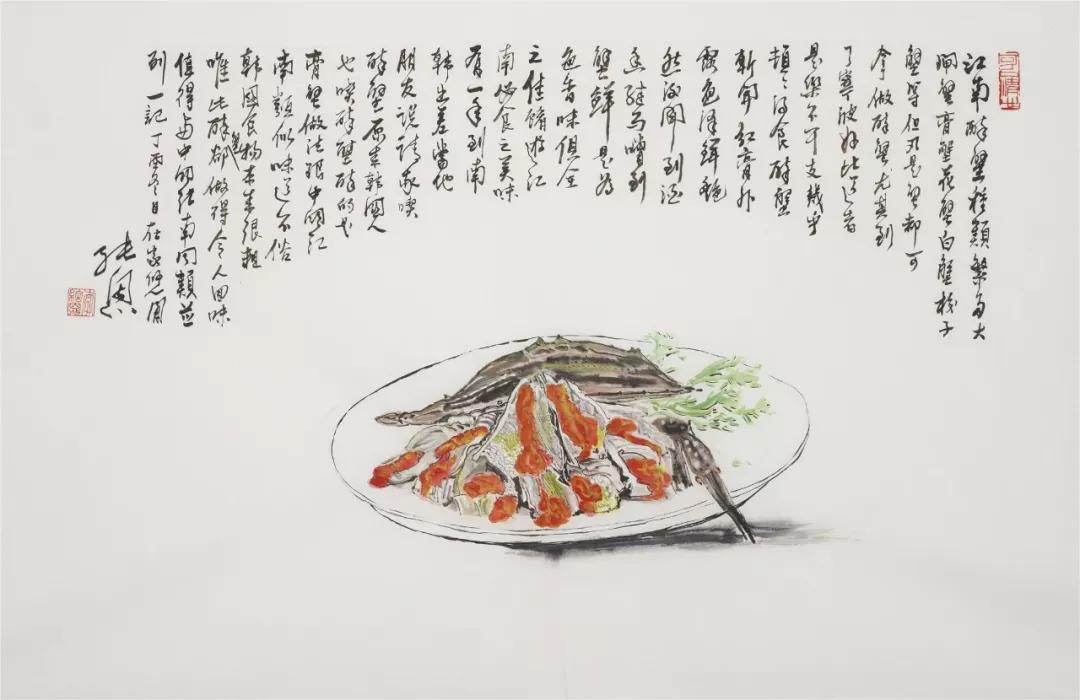 江南醉蟹種類繁多大
閘蟹膏蟹花蟹白蟹梭子
蟹等但凡是蟹都可
拿做醉蟹尤其到
了寧波好此道者
是樂不可支幾乎
頓〻得食醉蟹
斬開紅膏外
露色澤鮮艷
然後聞到酒
香繼而嚐到
蟹鮮是為
色香味俱全
之佳餚遊江
南必食之美味
有一年到南
韓出差當地
朋友說請我喫
醉蟹原來韓國人
也喫醉蟹醉的
膏蟹做法跟中國江
南類似味道不俗
韓國食物本來很粗
唯此醉蟹卻做得令人回味
值得與中國的江南同類並
列一記丁酉冬日在家